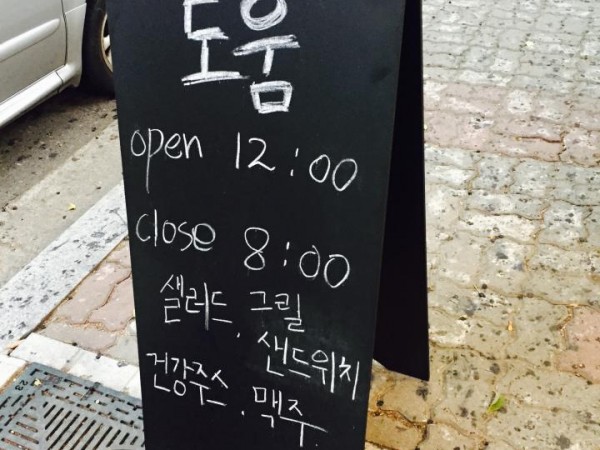 도움
open 12:00
close 8:00
샐러드. 그릴
. 샌드위치
건강주스. 맥주.